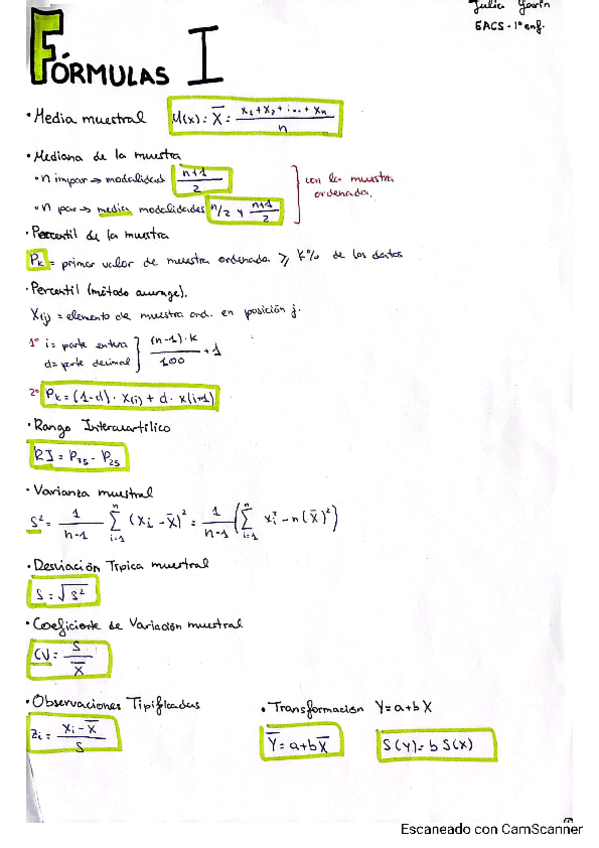 Julia Marín
EACS - 1º enf.
FÓRMULAS I
• Media muestral M(x) = X̄ = (x₁ + x₂ + ... + xₙ) / n
• Mediana de la muestra
• n impar → modalidad (n+1)/2
• n par → media modalidades n/2 y (n+1)/2
con la muestra ordenada.
• Percentil de la muestra
Pₖ = primer valor de muestra ordenada ≥ k% de los datos
• Percentil (método average).
X(j) = elemento de muestra ord. en posición j.
1º i = parte entera
d = parte decimal
(n-1)·k / 100 + 1
2º Pₖ = (1-d) · x(i) + d · x(i+1)
• Rango Intercuartílico
RI = P₇₅ - P₂₅
• Varianza muestral
S² = 1/(n-1) Σⁿᵢ₌₁ (xᵢ - x̄)² = 1/(n-1) (Σⁿᵢ₌₁ xᵢ² - n(x̄)²)
• Desviación Típica muestral
S = √S²
• Coeficiente de Variación muestral
CV = S / X̄
• Observaciones Tipificadas
zᵢ = (xᵢ - X̄) / S
• Transformación Y = a + bX
Ȳ = a + bX̄ S(Y) = b S(X)
Escaneado con CamScanner